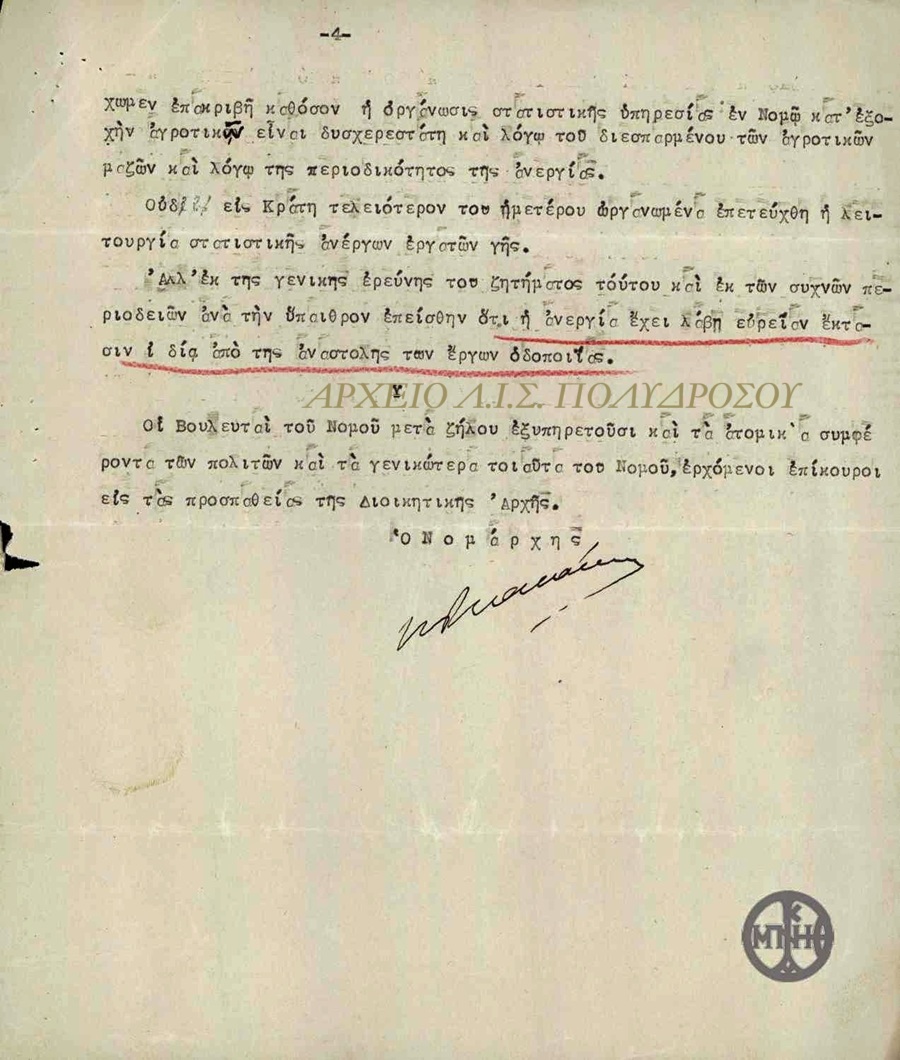 -4-
χωμεν ἐπακριβῆ καθόσον ἡ ὀργάνωσις στατιστικῆς ὑπηρεσίας ἐν Νομῷ κατ' ἐξο-
χὴν ἀγροτικῷ εἶναι δυσχερεστάτη καὶ λόγῳ τοῦ διεσπαρμένου τῶν ἀγροτικῶν
μαζῶν καὶ λόγῳ της περιοδικότητος της ἀνεργίας.
Οὐδ εἰς Κράτη τελειότερον του ἡμετέρου ὠργανωμένα ἐπετεύχθη ἡ λει-
τουργία στατιστικῆς ἀνέργων ἐργατῶν γῆς.
Ἀλλ' ἐκ της γενικης ἐρεύνης του ζητήματος τούτου καὶ ἐκ τῶν συχνῶν πε-
ριοδειῶν ἀνὰ τὴν ὕπαιθρον ἐπείσθην ὅτι ἡ ἀνεργία ἔχει λάβῃ εὐρεῖαν ἔκτα-
σιν ἰδίᾳ ἀπὸ της ἀναστολης των ἔργων ὁδοποιΐας.
ΑΡΧΕΙΟ Λ.Ι.Σ. ΠΟΛΥΔΡΟΣΟΥ
Υ
Οἱ Βουλευταὶ τοῦ Νομοῦ μετὰ ζήλου ἐξυπηρετοῦσι καὶ τὰ ἀτομικὰ συμφέ
ροντα τῶν πολιτῶν καὶ τὰ γενικώτερα τοιαῦτα του Νομοῦ, ἐρχόμενοι ἐπίκουροι
εἰς τὰς προσπαθείας της Διοικητικης Ἀρχῆς.
Ὁ Νομάρχης
ΜΠΚΗΘ